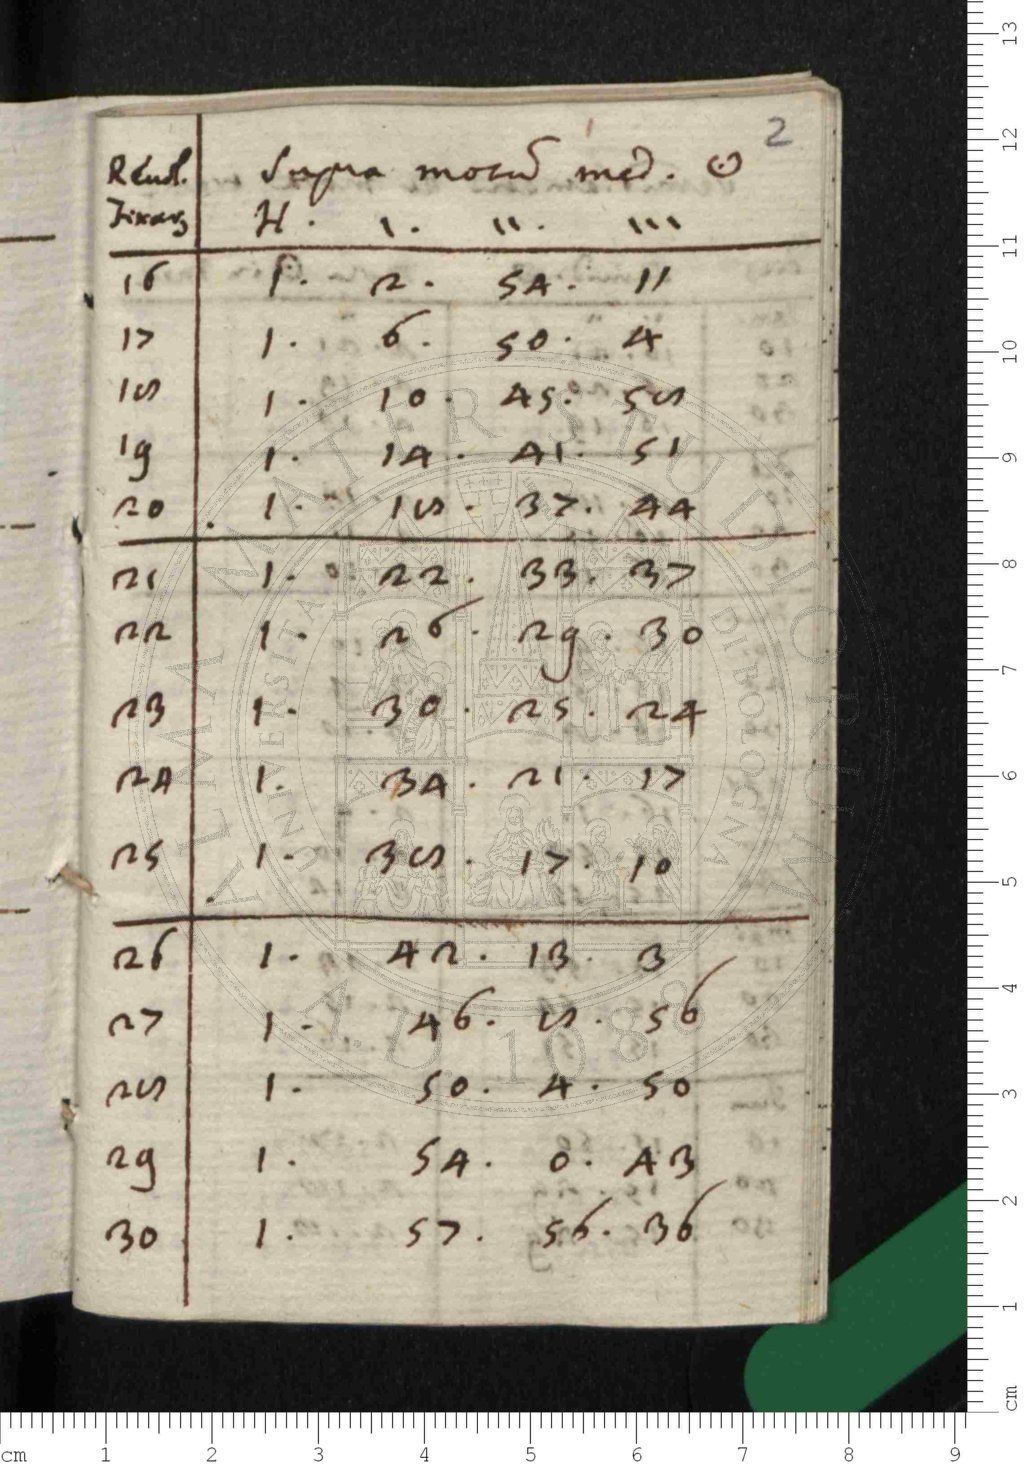 2
Revol. Supra motū med. ☉
Fixarū H. ı. ıı. ııı
16 1. 2. 54. 11
17 1. 6. 50. 4
18 1. 10. 45. 58
19 1. 14. 41. 51
20 1. 18. 37. 44
21 1. 22. 33. 37
22 1. 26. 29. 30
23 1. 30. 25. 24
24 1. 34. 21. 17
25 1. 38. 17. 10
26 1. 42. 13. 3
27 1. 46. 8. 56
28 1. 50. 4. 50
29 1. 54. 0. 43
30 1. 57. 56. 36
ALMA MATER STUDIORUM
UNIVERSITA DI BOLOGNA
A.D. 1088
13
12
11
10
9
8
7
6
5
4
3
2
1
cm
cm 1 2 3 4 5 6 7 8 9